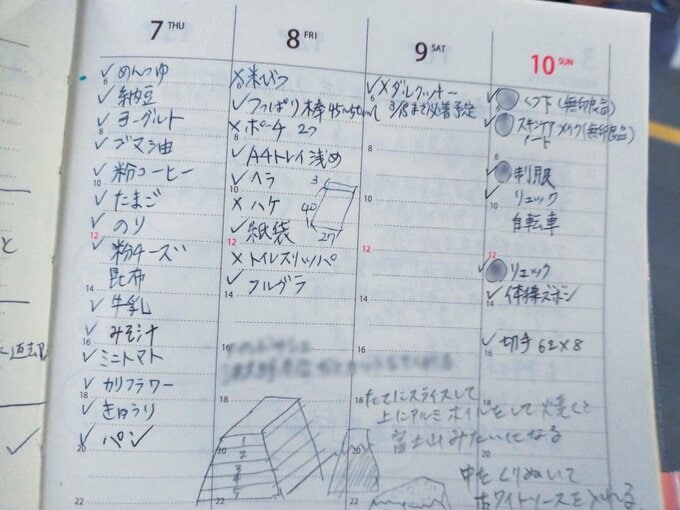 7 THU
✓ めんつゆ
6
✓ 納豆
✓ ヨーグルト
8
✓ ゴマ油
✓ 粉コーヒー
10
✓ たまご
✓ のり
12
✓ 粉チーズ
昆布
14
✓ 牛乳
✓ みそ汁
16
✓ ミニトマト
✓ カリフラワー
18
✓ きゅうり
✓ パン
20
22
8 FRI
× 米びつ
6
✓ つっぱり棒 45〜75cm
× ポーチ 2つ
8
✓ A4トレイ浅め
✓ ヘラ
10
× ハケ
✓ 紙袋
12
× トイレスリッパ
✓ フルグラ
14
3
40
27
16
18
20
1
2
3
4
5
22
9 SAT
✓ × ダルクッキー
6
3/8まで必着予定
8
10
12
14
16
18
たてにスライスして
上にアルミホイルをして焼くと
富士山みたいになる
20
中をくりぬいて
ホワイトソースを入れる
22
10 SUN
✓ くつ下 (無印良品)
6
✓ スキンケア メイク (無印良品)
ノート
8
✓ 制服
✓ リュック
10
自転車
12
✓ リュック
✓ 体操ズボン
14
✓ 切手 62×8
16
18
20
と